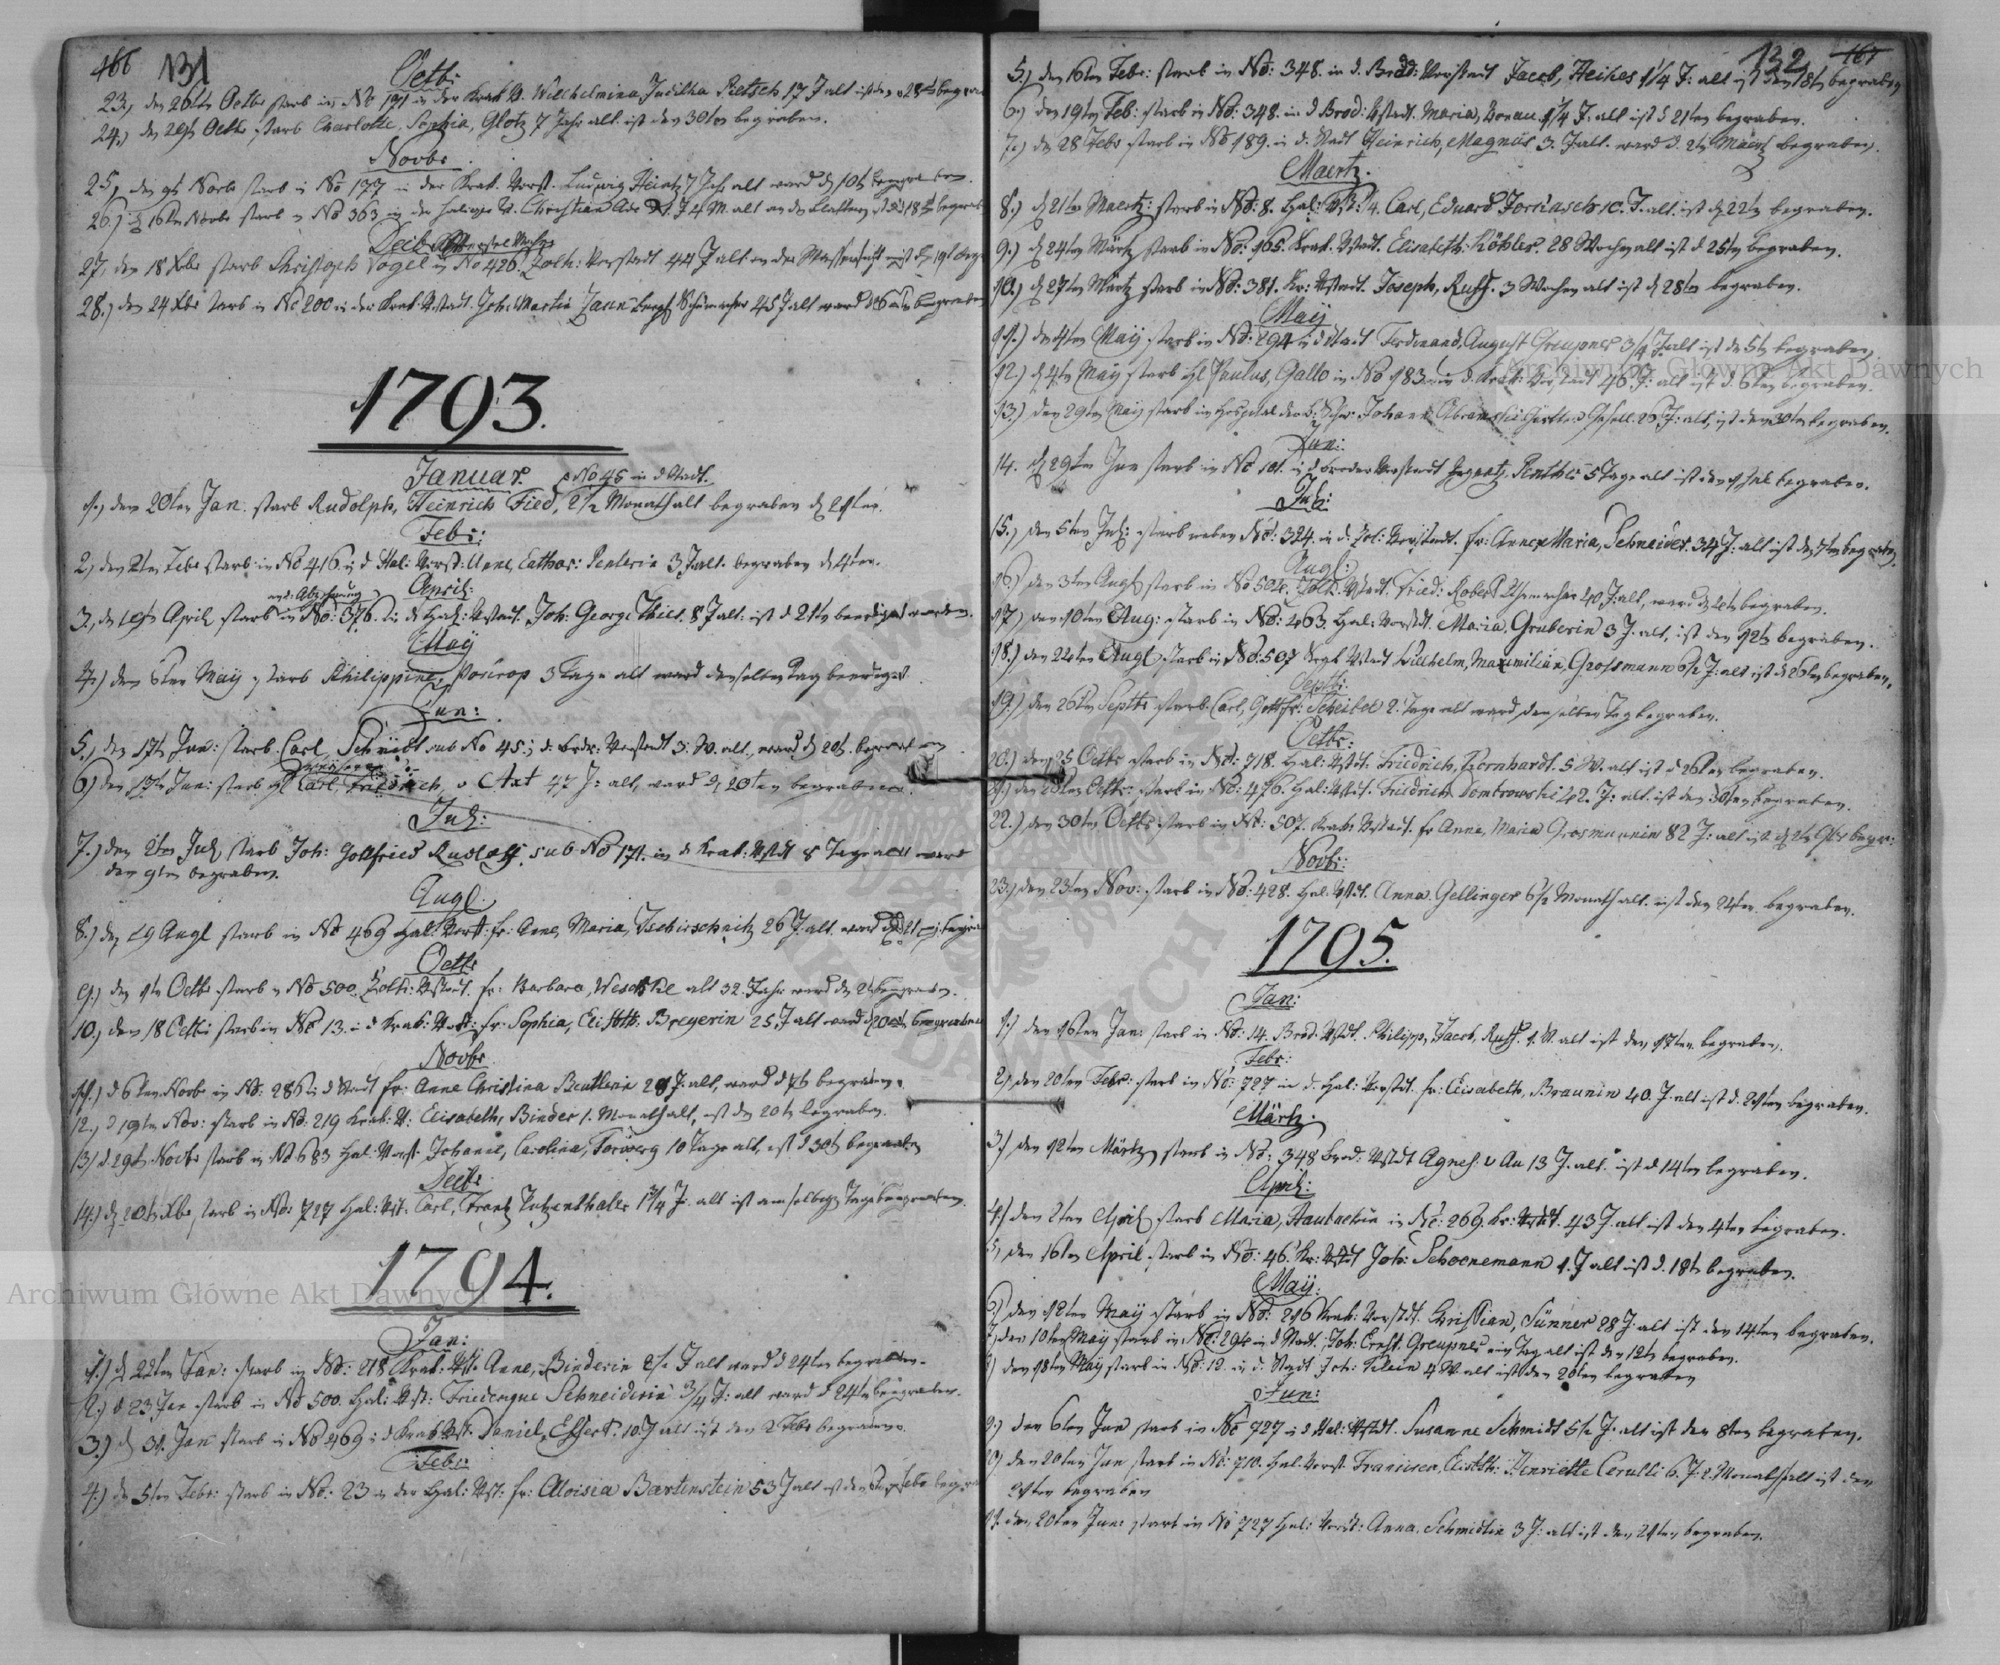 466 131
Octb:
23, den 26ten Octbr starb in No 191 in der Krak. V. Wilhelmina, Juditha Pietsch 17 J alt ist den 28ten begra
24.) den 29t Octbr starb Charlotte, Sophia, Glotz 7 Jahr alt ist den 30ten begraben.
Novbr
25, den 9t Novb starb in No 137 in der Krak. Vorst. Ludwig Heintz 7 Jahr alt ward d 10t begraben.
26.) d 16ten Novbr starb in No 363 in der Halizer V. Christian J 4 M. alt an den Blattern 18t begrab
Decbr
27, den 18 Xbr starb Christoph Vogel in No 426 Zolk: Vorstadt 44 J alt an der Wassersucht 19t begr
28.) den 24 Xbr starb in No 200 in der Krak: Vstadt. Joh: Martin Zann Schumacher 45 J alt ward begraben
1793.
Januar. No 45 in d Stadt.
1., den 20ten Jan. starb Rudolph, Heinrich Fied, 2 1/2 Monath alt begraben d 21ten.
Febr:
2, den 2ten Febr starb in No 416 in d Hal: Vorst: Anna, Cathar: Penterin 3 J alt. begraben d 4ten.
April:
an d: Abzehrung
3, den 19t April starb in No: 376. in d Hal: Vstadt. Joh: Georg Thiel. 8 J alt. ist d 21ten beerdiget worden.
May
4.) den 6ten May starb Philippine, Posirop 3 Tage alt ward denselben Tag beerdiget.
Jun:
5., den 17t Jun: starb Carl, Schmidt sub No 45 in d: Brdr: Vorstadt 3. W. alt, ward d 20t. begraben
6) den 17t Jun: starb H Carl, Friedrich, v Axt 47 J: alt, ward d, 20ten begraben.
Jul:
7.) den 2ten Jul starb Joh: Gottfried Rudolff, sub No 171. in d Krak: Vstdt 8 Tage alt ward
den 9ten begraben.
Augl.
8.) den 29 Augl starb in No 469 Hal: Vorst: fr: Anne, Maria, Tschirschnitz 26 J. alt. ward d 21 begra
Octb
9.) den 1ten Octbr starb in No 500. Zolk: Vstadt. fr: Barbara, Weschke alt 32. Jahr ward den 2t begraben.
10, den 18 Octbr starb in No 13. in d Krak: Vost: fr: Sophia, Elisabth. Bregerin 25 J alt ward d 20ten begraben
Novbr
11.) d 6ten Novbr in No: 286 in d Stadt fr: Anne Christina Beutlerin 29 J. alt, ward d 7t begraben.
12., d 19ten Nov: starb in No: 219 Krak: V: Elisabeth, Binder 1. Monath alt, ist den 20t begraben.
13) d 29t Novbr starb in No 683 Hal: Vorst: Johanne, Carolina, Forwerg 10 Tage alt, ist d 30t begraben
Decbr
14.) d 20t Xbr, starb in No: 727 Hal: Vst: Carl, Frantz Putzenthaler 1 3/4 J: alt ist am selbigen Tage begraben.
1794.
Jan:
1.) d 22ten Jan: starb in No: 218 Krak: Vst: Anne, Binderin 2 1/2 J alt ward d 24ten begraben.
2.) d 23 Jan starb in No 500. Hal: Vst: Friderique Schneiderin 3/4 J: alt ward d 24t begraben.
3.) d 31. Jan starb in No 469 in d Krak Vst. Daniel, Effert. 10 J alt ist den 2 Febr begraben.
Febr
4.) den 5ten Febr: starb in No: 23 in der Hal: Vst: fr: Aloisia Bartenstein 53 J alt ist den Febr begra
132 467
5.) den 16ten Febr: starb in No: 348. in d. Brod: Vorstadt Jacob, Heines 1 1/4 J: alt ist den 18t begraben
6.) den 19ten Feb: starb in No: 348. in d Brod: Vstadt. Maria, Donau. 1 1/4 J: alt ist d 21ten begraben.
7.) den 28 Febr starb in No 189. in d. Stadt Heinrich, Magnus 3. J alt. ward d. 2t Maertz begraben.
Maertz.
8.) d 21ten Maertz: starb in No: 8. Hal: Vst: 4. Carl, Eduard Forkasch 10. J. alt. ist d 22t begraben.
9.) d 24ten Märtz starb in No: 165. Krak. Vstadt. Elisabeth. Köhler. 28 Wochen alt ist d 25ten begraben.
10.) d 27ten Märtz starb in No: 381. Kr: Vstadt. Joseph, Ruff. 3 Wochen alt ist d 28ten begraben.
May
11.) den 4ten May starb in No: 294 in d Stadt Ferdinand, August Greupner 3/4 J. alt ist de 5t begraben.
12.) d 4ten May starb H Paulus, Gallo in No 183 in d. Krak: Vorstadt 46. J: alt ist d. 6ten begraben.
13.) den 29ten May starb im Hospital der b: Schw: Johann Gesell. 26 J: alt, ist den 30ten begraben.
Jun:
14. d 29ten Jun starb in No 101. in d Broder Vorstadt Ignatz, Penther 5 Tage alt ist den 1t Jul begraben.
Jul:
15.) den 5ten Jul: starb neben No: 324. in d: Zol: Vorstadt. fr: Anna Maria, Schneider. 34 J: alt ist den 7ten begraben
Augl:
16.) den 3ten Augl starb in No 502. Zolk: Vstadt. Fried: Robert 40 J: alt, ward d 4ten begraben.
17.) den 10ten Aug: starb in No: 463. Hal: Vorstdt. Maria, Gruberin 3 J. alt, ist den 12t begraben.
18.) den 24ten Augl starb in No: 507 Krak Vstadt Wilhelm, Maximilian, Grossmann 6 1/2 J: alt ist d 26ten begraben.
Septb:
19.) den 26ten Septb starb Carl, Gottfr: Scheibel 2. Tage alt ward denselben Tag begraben.
Octb:
20.) den 25 Octbr starb in No: 718. Hal: Vstdt. Friedrich, Bernhardt. 5 W. alt ist d 26ten begraben.
21.) den 28ten Octbr: starb in No: 476. Hal: Vstdt. Friedrich Dombrowski 42. J: alt. ist den 30ten begraben.
22.) den 30ten Octbr starb in No: 507. Krak: Vstadt. fr Anna, Maria Grosmannin 82 J: alt ist d 2t 9br begr:
Novb:
23.) den 23ten Nov: starb in No: 428. Hal: Vstdt. Anna Gellinger 6 1/2 Monath alt. ist den 24ten. begraben.
1795.
Jan:
1.) den 16ten Jan: starb in No: 14. Brod: Vstdt. Philipp, Jacob, Ruff. 1. W. alt ist den 17ten begraben.
Febr:
2, den 20ten Febr: starb in No: 727 in d: Hal: Vorstdt. fr: Elisabeth, Braunin 40. J. alt ist d. 21ten begraben.
Märtz
3.) den 12ten Märtz starb in No: 348 Brod: Vstdt Agnes. v Au 13 J. alt. ist d 14ten begraben.
April:
4.) den 2ten April starb Maria, Haubnerin in No: 269. Kr: Vstdt. 43 J. alt ist den 4ten begraben.
5, den 16ten April starb in No: 46. Kr: Vstdt Joh: Schoenemann 1. J alt ist d. 18t begraben.
May:
6) den 12ten May starb in No: 216 Krak: Vorstdt. Christian, Sünner 28 J. alt ist den 14ten begraben.
7, den 10ten May starb in No: 294 in d Stadt. Joh: Ernst. Greupner ein Tag alt ist den 12t begraben.
8) den 18ten May starb in No: 12. in d. Stadt Joh: Klein 4 W alt ist den 20ten begraben
Jun:
9.) den 6ten Jun starb in No 727 in d Hal: Vstdt. Susanne Schmidt 5 1/2 J. alt ist den 8ten begraben.
10) den 20ten Jun starb in No: 710. Hal: Vorst. Francisca, Elisbth: Henriette Cerulli 6. J: 2. Monath alt ist den
21ten begraben
11. den 20ten Jun: starb in No 727 Hal: Vorst: Anna Schmidtin 3 J: alt ist den 21ten begraben.
Archiwum Główne Akt Dawnych
Archiwum Główne Akt Dawnych